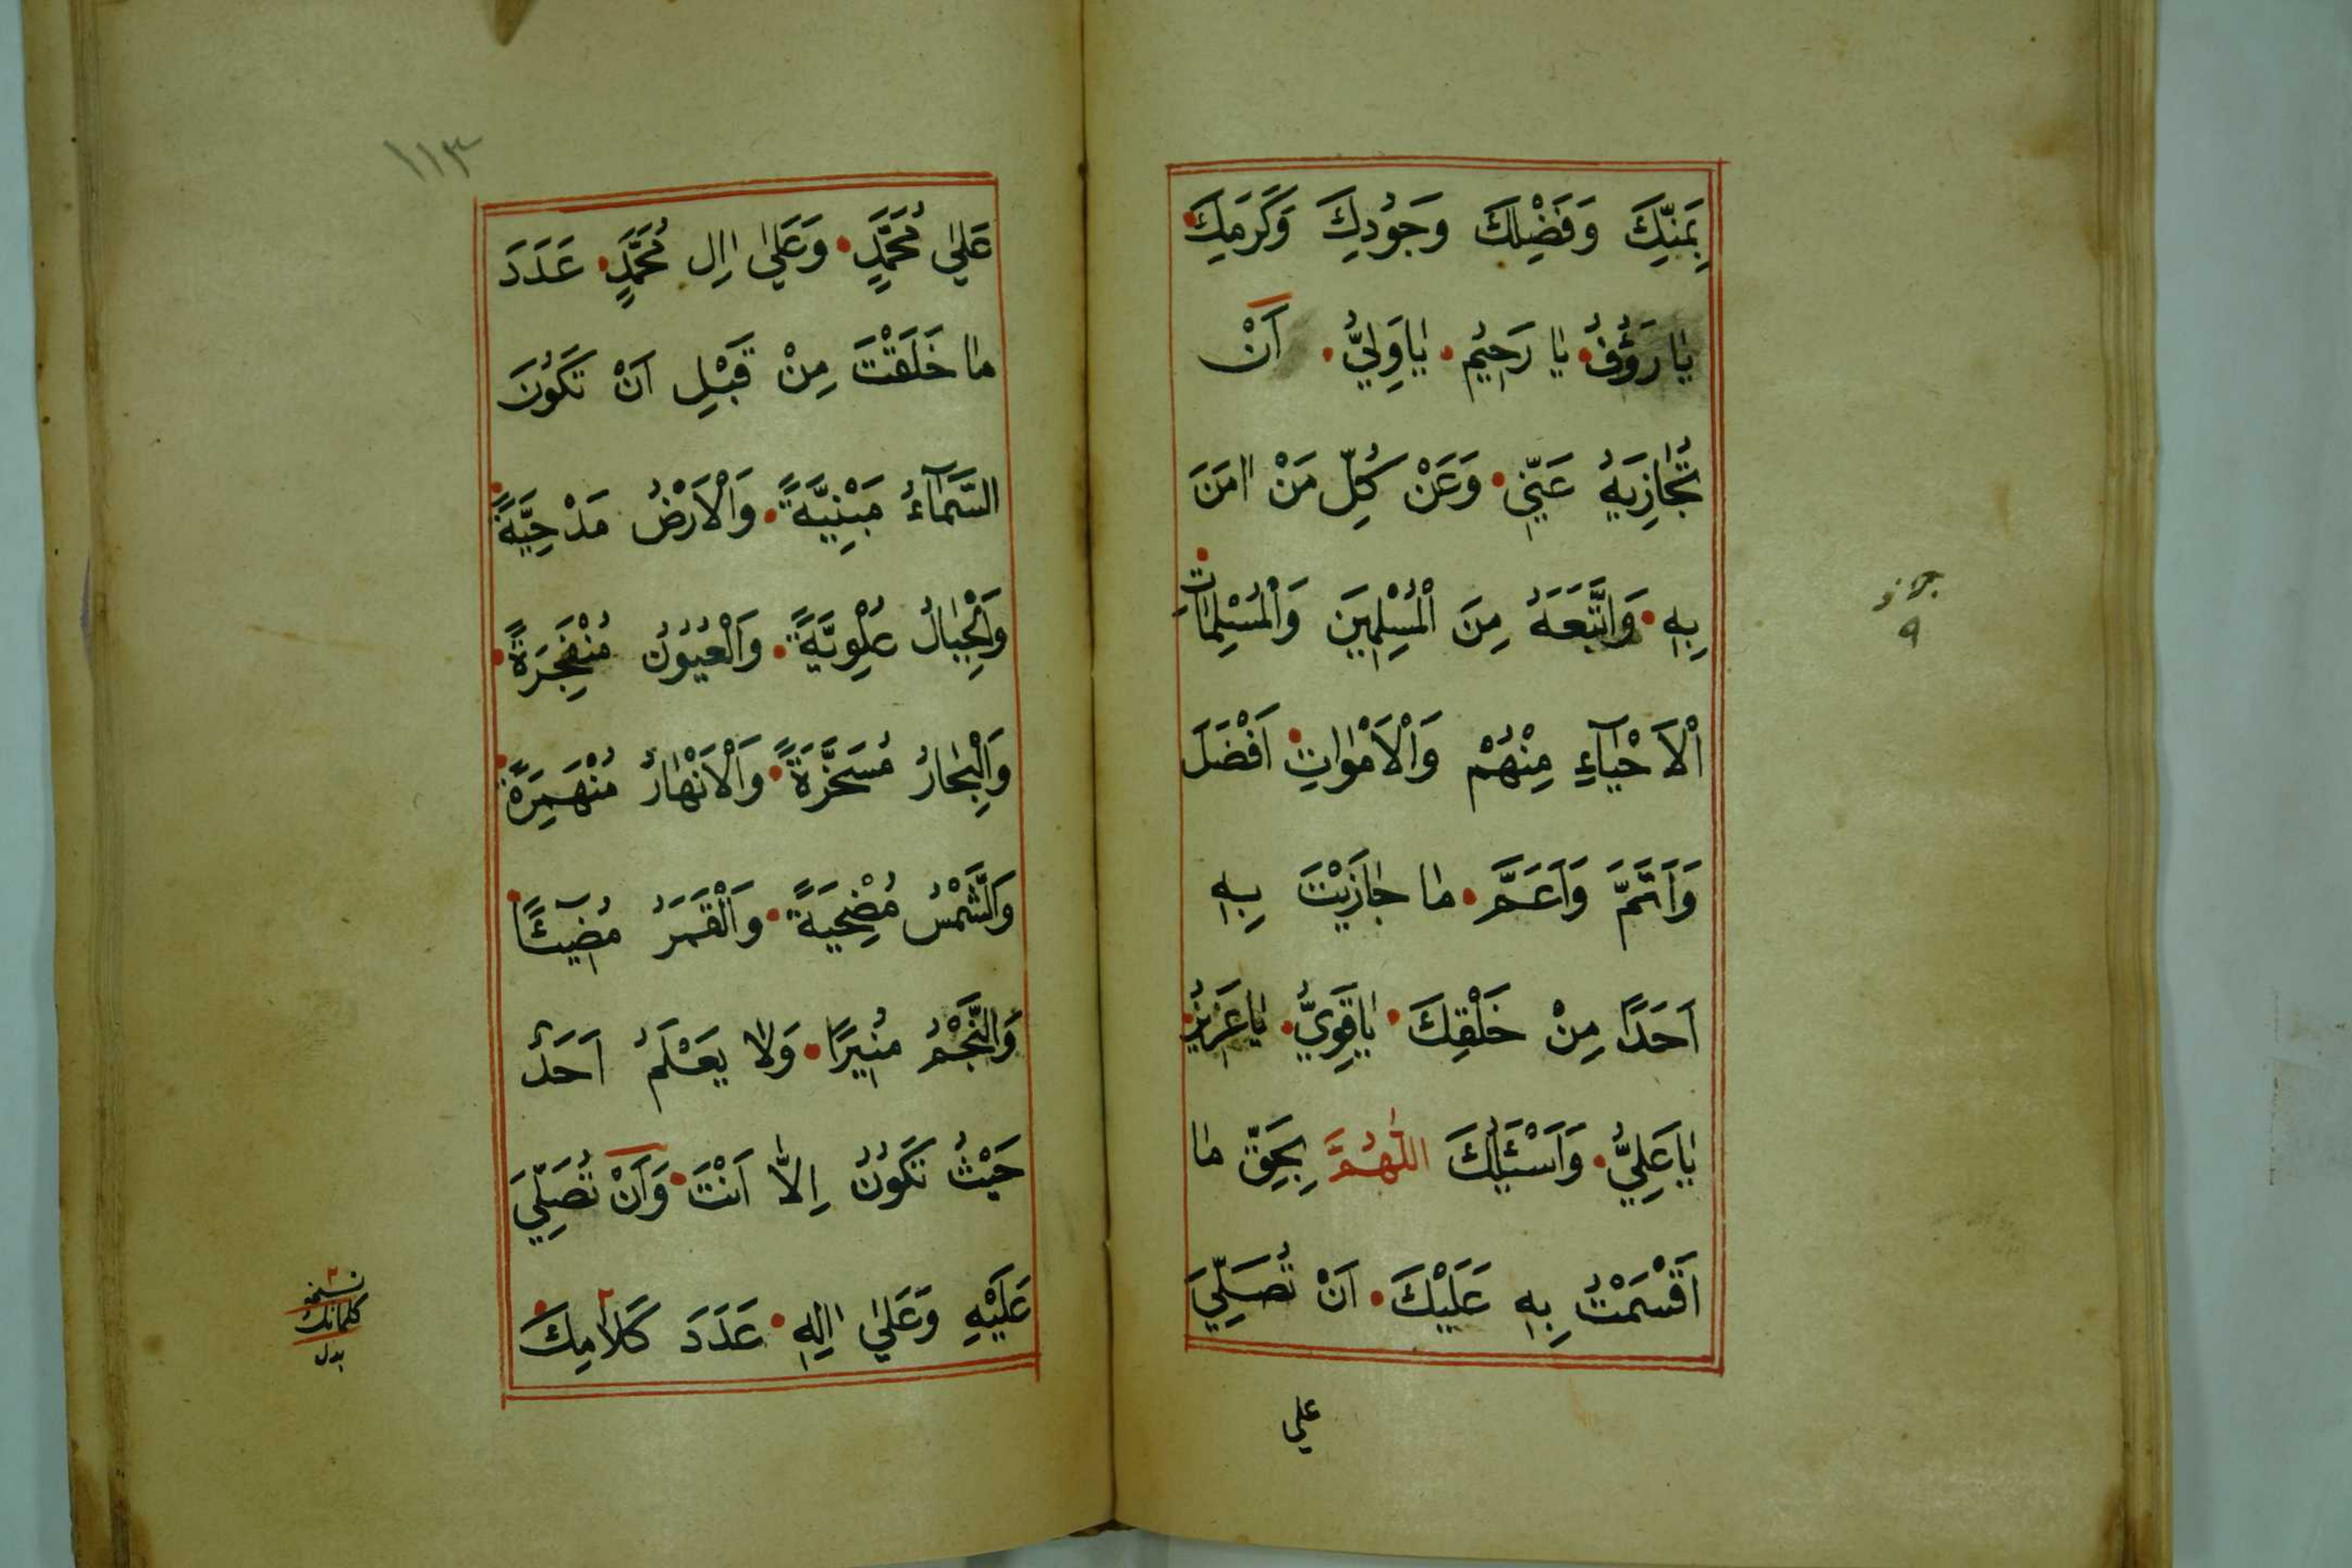 بِمَنِّكَ وَفَضْلِكَ وَجُودِكَ وَكَرَمِكَ
يَا رَؤُفُ يَا رَحِيمُ يَا وَلِيُّ أَنْ
تُجَازِيَهُ عَنِّي وَعَنْ كُلِّ مَنْ اٰمَنَ
بِهِ وَاتَّبَعَهُ مِنَ الْمُسْلِمِينَ وَالْمُسْلِمَاتِ
اَلْاَحْيَآءِ مِنْهُمْ وَالْاَمْوَاتِ اَفْضَلَ
وَاَتَمَّ وَاَعَمَّ مَا جَازَيْتَ بِهِ
اَحَدًا مِنْ خَلْقِكَ يَا قَوِيُّ يَا عَزِيزُ
يَا عَلِيُّ وَاَسْئَلُكَ اللّٰهُمَّ بِحَقِّ مَا
اَقْسَمْتُ بِهِ عَلَيْكَ اَنْ تُصَلِّيَ
علي
١١٣
عَلٰى مُحَمَّدٍ وَعَلٰى اٰلِ مُحَمَّدٍ عَدَدَ
مَا خَلَقْتَ مِنْ قَبْلِ اَنْ تَكُونَ
السَّمَآءُ مَبْنِيَّةً وَالْاَرْضُ مَدْحِيَّةً
وَالْجِبَالُ عُلْوِيَّةً وَالْعُيُونُ مُنْفَجِرَةً
وَالْبِحَارُ مُسَخَّرَةً وَالْاَنْهَارُ مُنْهَمِرَةً
وَالشَّمْسُ مُضْحِيَةً وَالْقَمَرُ مُضِيئًا
وَالنَّجْمُ مُنِيرًا وَلَا يَعْلَمُ اَحَدٌ
حَيْثُ تَكُونُ اِلَّا اَنْتَ وَاَنْ تُصَلِّيَ
عَلَيْهِ وَعَلٰى اٰلِهِ عَدَدَ كَلَامِكَ
نسخة
كلماتك
بدل